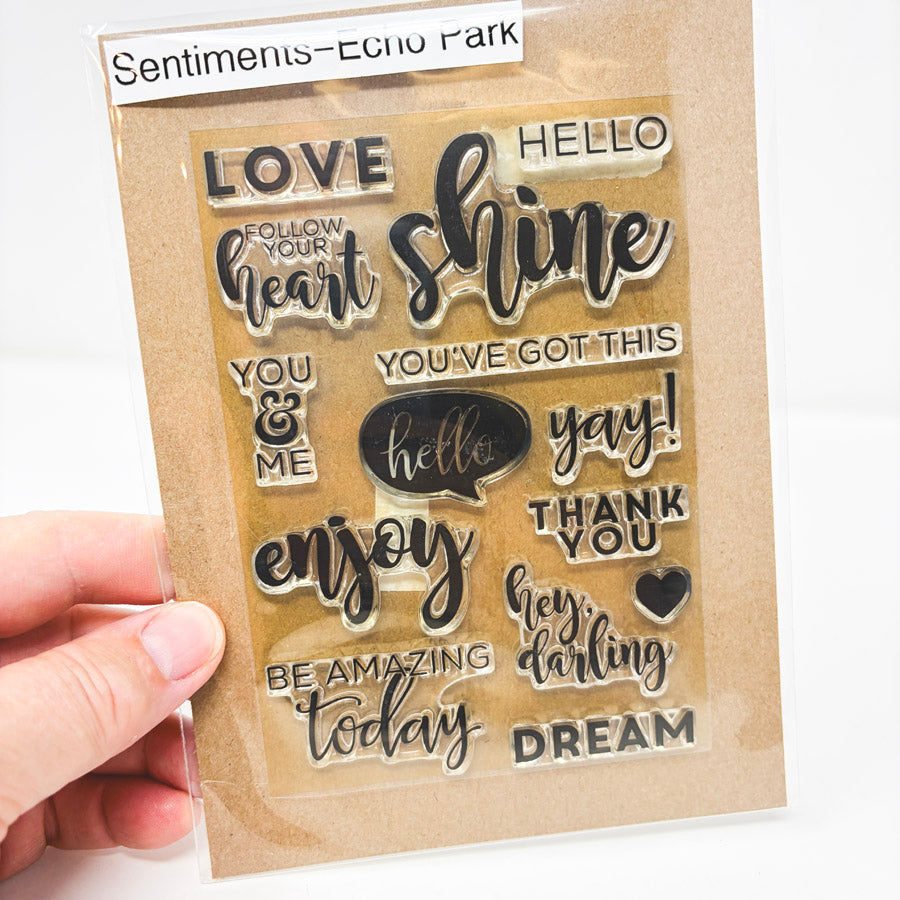 Sentiments-Echo Park
LOVE
HELLO
shine
FOLLOW
YOUR
heart
YOU'VE GOT THIS
YOU
&
ME
hello
yay!
enjoy
THANK
YOU
hey,
darling
BE AMAZING
today
DREAM